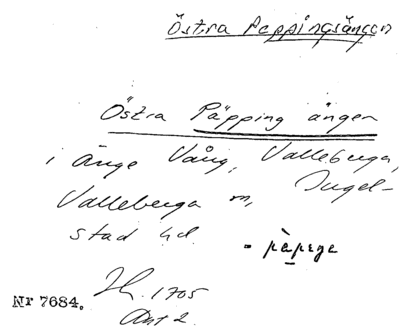 Östra Peppingsängen
Östra Päpping ängen
i Änge Vång, Valleberga,
Valleberga sn, Ingel-
stad hd.
- pàpɩŋa
Nr 7684. 1705
Akt 2.